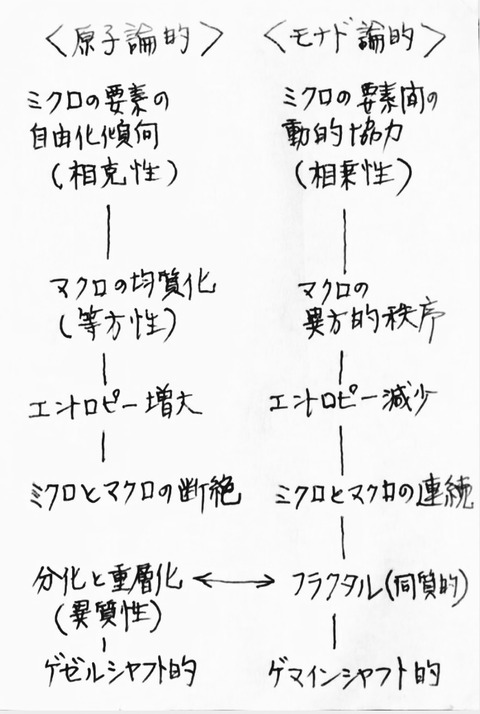 ＜原子論的＞
ミクロの要素の
自由化傾向
(相克性)
マクロの均質化
(等方性)
エントロピー増大
ミクロとマクロの断絶
分化と重層化
(異質性)
ゲゼルシャフト的
＜モナド論的＞
ミクロの要素間の
動的協力
(相乗性)
マクロの
異方的秩序
エントロピー減少
ミクロとマクロの連続
フラクタル(同質的)
ゲマインシャフト的